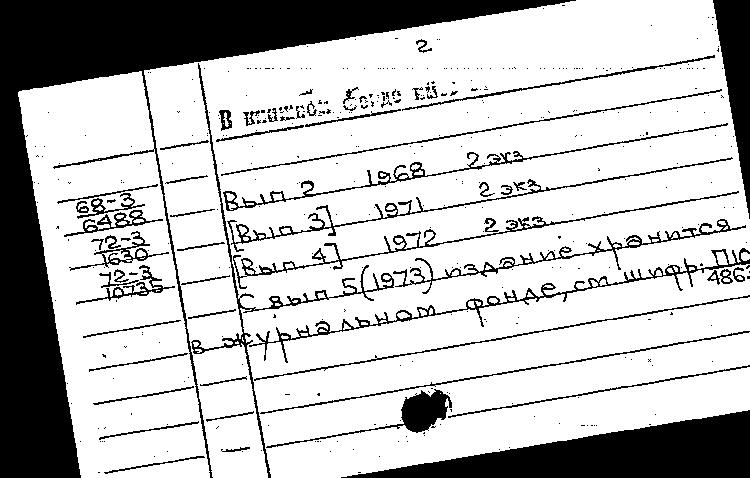 2
В книжном фонде
68-3
6488
Вып 2 1968 2 экз
72-3
1630
[Вып 3] 1971 2 экз.
72-3
10735
[Вып 4] 1972 2 экз.
С вып 5 (1973) издание хранится
в журнальном фонде, см шифр: